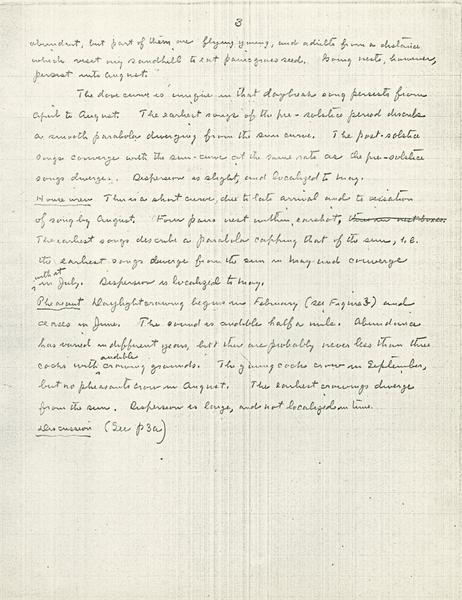 3
abundant, but part of them are flying young, and adults from a distance
which visit my sandhill to eat panic grass seed. Some nests, however,
persist into August.
The dove curve is unique in that daybreak song persists from
April to August. The earliest songs of the pre-solstice period describe
a smooth parabola diverging from the sun curve. The post-solstice
songs converge with the sun-curve at the same rate as the pre-solstice
songs diverge. Dispersion is slight, and localized to May.
House wren This is a short curve, due to late arrival and to cessation
of song by August. Four pairs nest within earshot,
The earliest songs describe a parabola capping that of the sun, i.e.
the earliest songs diverge from the sun in May and converge
with it
in July. Dispersion is localized to May.
Pheasant Daylight crowing begins in February (see Figure 3) and
ceases in June. The sound is audible half a mile. Abundance
has varied in different years, but there are probably never less than three
audible
cocks with crowing grounds. The young cocks crow in September,
but no pheasants crow in August. The earliest crowings diverge
from the sun. Dispersion is large, and not localized in time.
Discussion (See p3a)